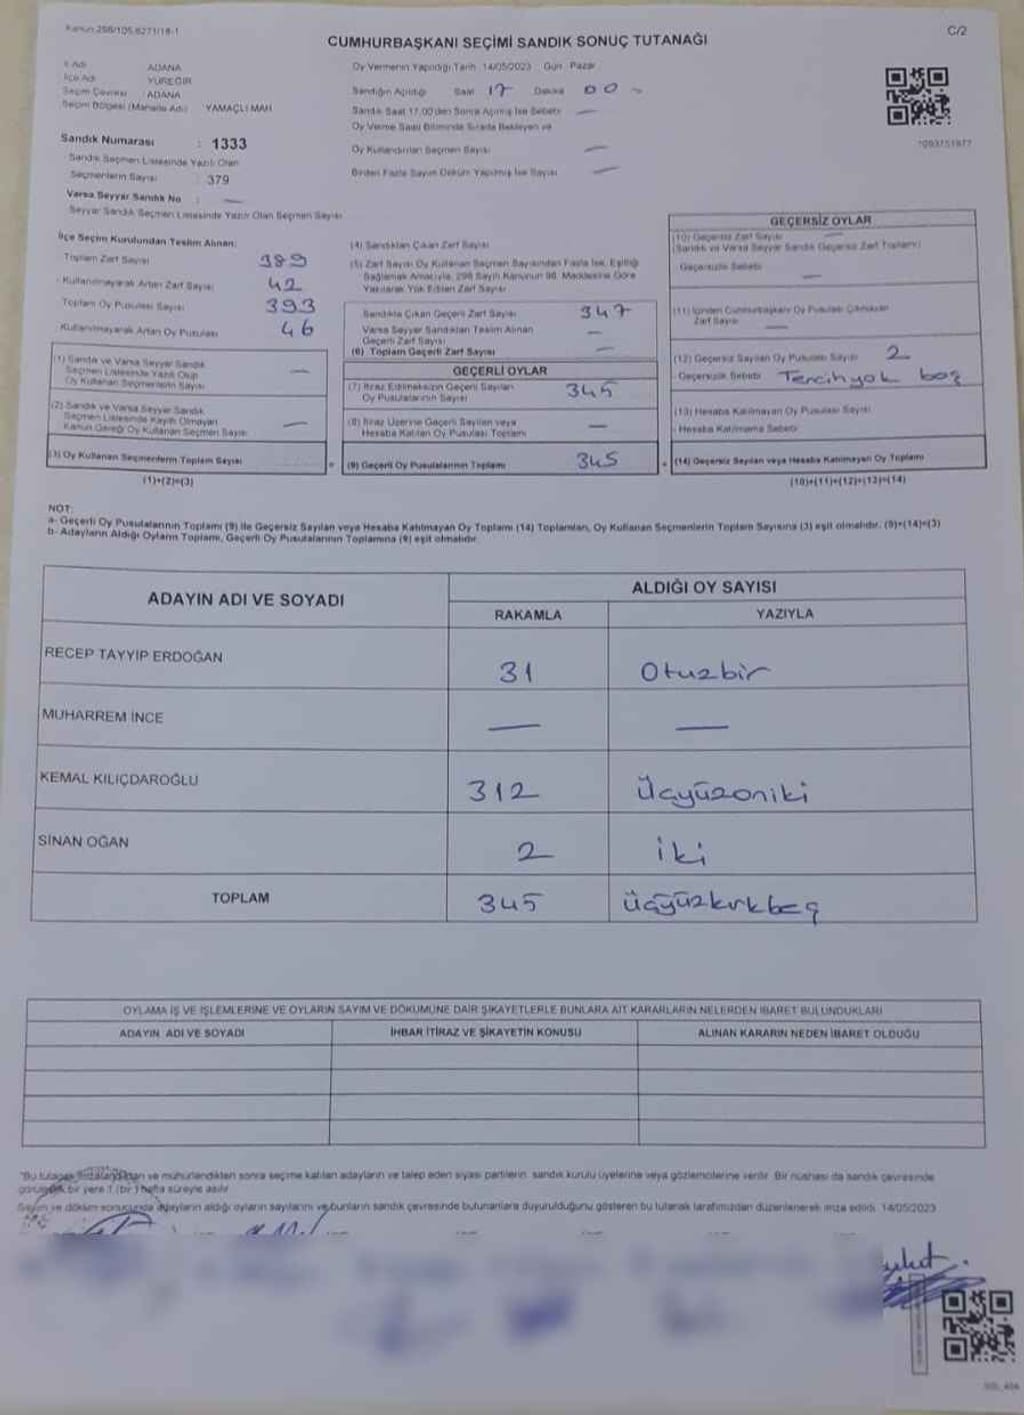 Kanun:298/105,6271/18-1
C/2
CUMHURBAŞKANI SEÇİMİ SANDIK SONUÇ TUTANAĞI
İl Adı ADANA
İlçe Adı YÜREĞİR
Seçim Çevresi ADANA
Seçim Bölgesi (Mahalle Adı) YAMAÇLI MAH
Oy Vermenin Yapıldığı Tarih 14/05/2023 Gün Pazar
Sandığın Açıldığı Saat 17 Dakika 00
Sandık Saat 17.00'den Sonra Açılmış İse Sebebi —
Oy Verme Saati Bitiminde Sırada Bekleyen ve
Oy Kullandırılan Seçmen Sayısı —
Birden Fazla Sayım Döküm Yapılmış İse Sayısı —
Sandık Numarası : 1333
Sandık Seçmen Listesinde Yazılı Olan
Seçmenlerin Sayısı : 379
Varsa Seyyar Sandık No : —
Seyyar Sandık Seçmen Listesinde Yazılı Olan Seçmen Sayısı
İlçe Seçim Kurulundan Teslim Alınan:
Toplam Zarf Sayısı 389
Kullanılmayarak Artan Zarf Sayısı 42
Toplam Oy Pusulası Sayısı 393
Kullanılmayarak Artan Oy Pusulası 46
(1) Sandık ve Varsa Seyyar Sandık
Seçmen Listesinde Yazılı Olup
Oy Kullanan Seçmenlerin Sayısı —
(2) Sandık ve Varsa Seyyar Sandık
Seçmen Listesinde Kayıtlı Olmayan
Kanun Gereği Oy Kullanan Seçmen Sayısı —
(3) Oy Kullanan Seçmenlerin Toplam Sayısı
(1)+(2)=(3)
(4) Sandıktan Çıkan Zarf Sayısı
(5) Zarf Sayısı Oy Kullanan Seçmen Sayısından Fazla İse, Eşitliği
Sağlamak Amacıyla, 298 Sayılı Kanunun 98. Maddesine Göre
Yakılarak Yok Edilen Zarf Sayısı
Sandıkta Çıkan Geçerli Zarf Sayısı 347
Varsa Seyyar Sandıktan Teslim Alınan
Geçerli Zarf Sayısı —
(6) Toplam Geçerli Zarf Sayısı —
GEÇERLİ OYLAR
(7) İtiraz Edilmeksizin Geçerli Sayılan
Oy Pusulalarının Sayısı 345
(8) İtiraz Üzerine Geçerli Sayılan veya
Hesaba Katılan Oy Pusulası Toplamı —
(9) Geçerli Oy Pusulalarının Toplamı 345
GEÇERSİZ OYLAR
(10) Geçersiz Zarf Sayısı —
(Sandık ve Varsa Seyyar Sandık Geçersiz Zarf Toplamı)
Geçersizlik Sebebi —
(11) İçinden Cumhurbaşkanı Oy Pusulası Çıkmayan
Zarf Sayısı —
(12) Geçersiz Sayılan Oy Pusulası Sayısı 2
Geçersizlik Sebebi Tercih yok boş
(13) Hesaba Katılmayan Oy Pusulası Sayısı
Hesaba Katılmama Sebebi
(14) Geçersiz Sayılan veya Hesaba Katılmayan Oy Toplamı
(10)+(11)+(12)+(13)=(14)
NOT:
a- Geçerli Oy Pusulalarının Toplamı (9) ile Geçersiz Sayılan veya Hesaba Katılmayan Oy Toplamı (14) Toplamları, Oy Kullanan Seçmenlerin Toplam Sayısına (3) eşit olmalıdır. (9)+(14)=(3)
b- Adayların Aldığı Oyların Toplamı, Geçerli Oy Pusulalarının Toplamına (9) eşit olmalıdır.
ADAYIN ADI VE SOYADI
ALDIĞI OY SAYISI
RAKAMLA YAZIYLA
RECEP TAYYİP ERDOĞAN 31 Otuzbir
MUHARREM İNCE — —
KEMAL KILIÇDAROĞLU 312 Üçyüzoniki
SİNAN OĞAN 2 iki
TOPLAM 345 üçyüzkırkbeş
OYLAMA İŞ VE İŞLEMLERİNE VE OYLARIN SAYIM VE DÖKÜMÜNE DAİR ŞİKAYETLERLE BUNLARA AİT KARARLARIN NELERDEN İBARET BULUNDUKLARI
ADAYIN ADI VE SOYADI İHBAR İTİRAZ VE ŞİKAYETİN KONUSU ALINAN KARARIN NEDEN İBARET OLDUĞU
"Bu tutanak imzalandıktan ve mühürlendikten sonra seçime katılan adayların ve talep eden siyasi partilerin sandık kurulu üyelerine veya gözlemcilerine verilir. Bir nüshası da sandık çevresinde
bir yere 1 (bir) hafta süreyle asılır
Sayım ve döküm sonucunda adayların aldığı oyların sayılarını ve bunların sandık çevresinde bulunanlara duyurulduğunu gösteren bu tutanak tarafımızdan düzenlenerek imza edildi. 14/05/2023